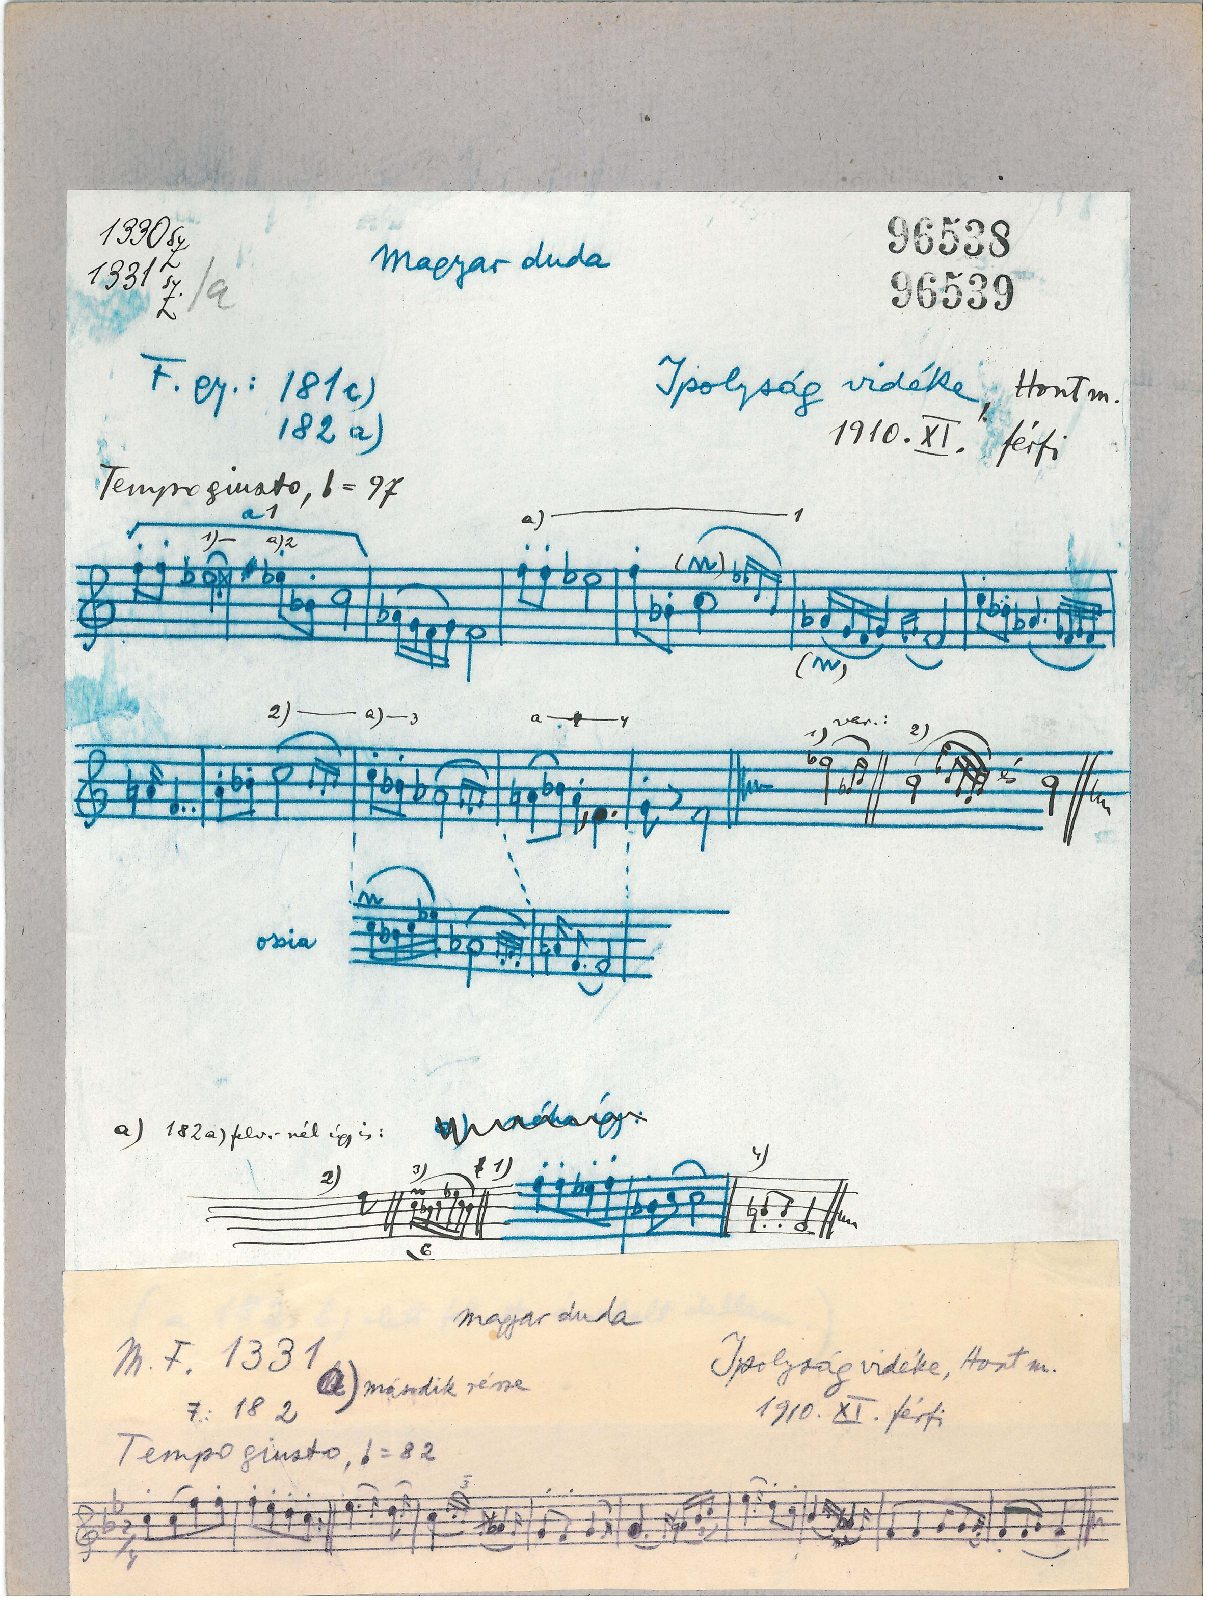 1330
1331 /a
96538
96539
Magyar duda
F. gy.: 181c)
182 a)
Ipolyság vidéke, Hont m.
1910. XI. férfi
Tempo giusto, = 97
a 1
1) a)2
a) 1
2) a) 3
a 4
var.:
1) 2)
és
ossia
a) 182a) felv.-nél így is:
2) 3) 1) 4)
6
magyar duda
M. F. 1331 a) második része
F: 182
Ipolyság vidéke, Hont m.
1910. XI. férfi
Tempo giusto, = 82
2/4